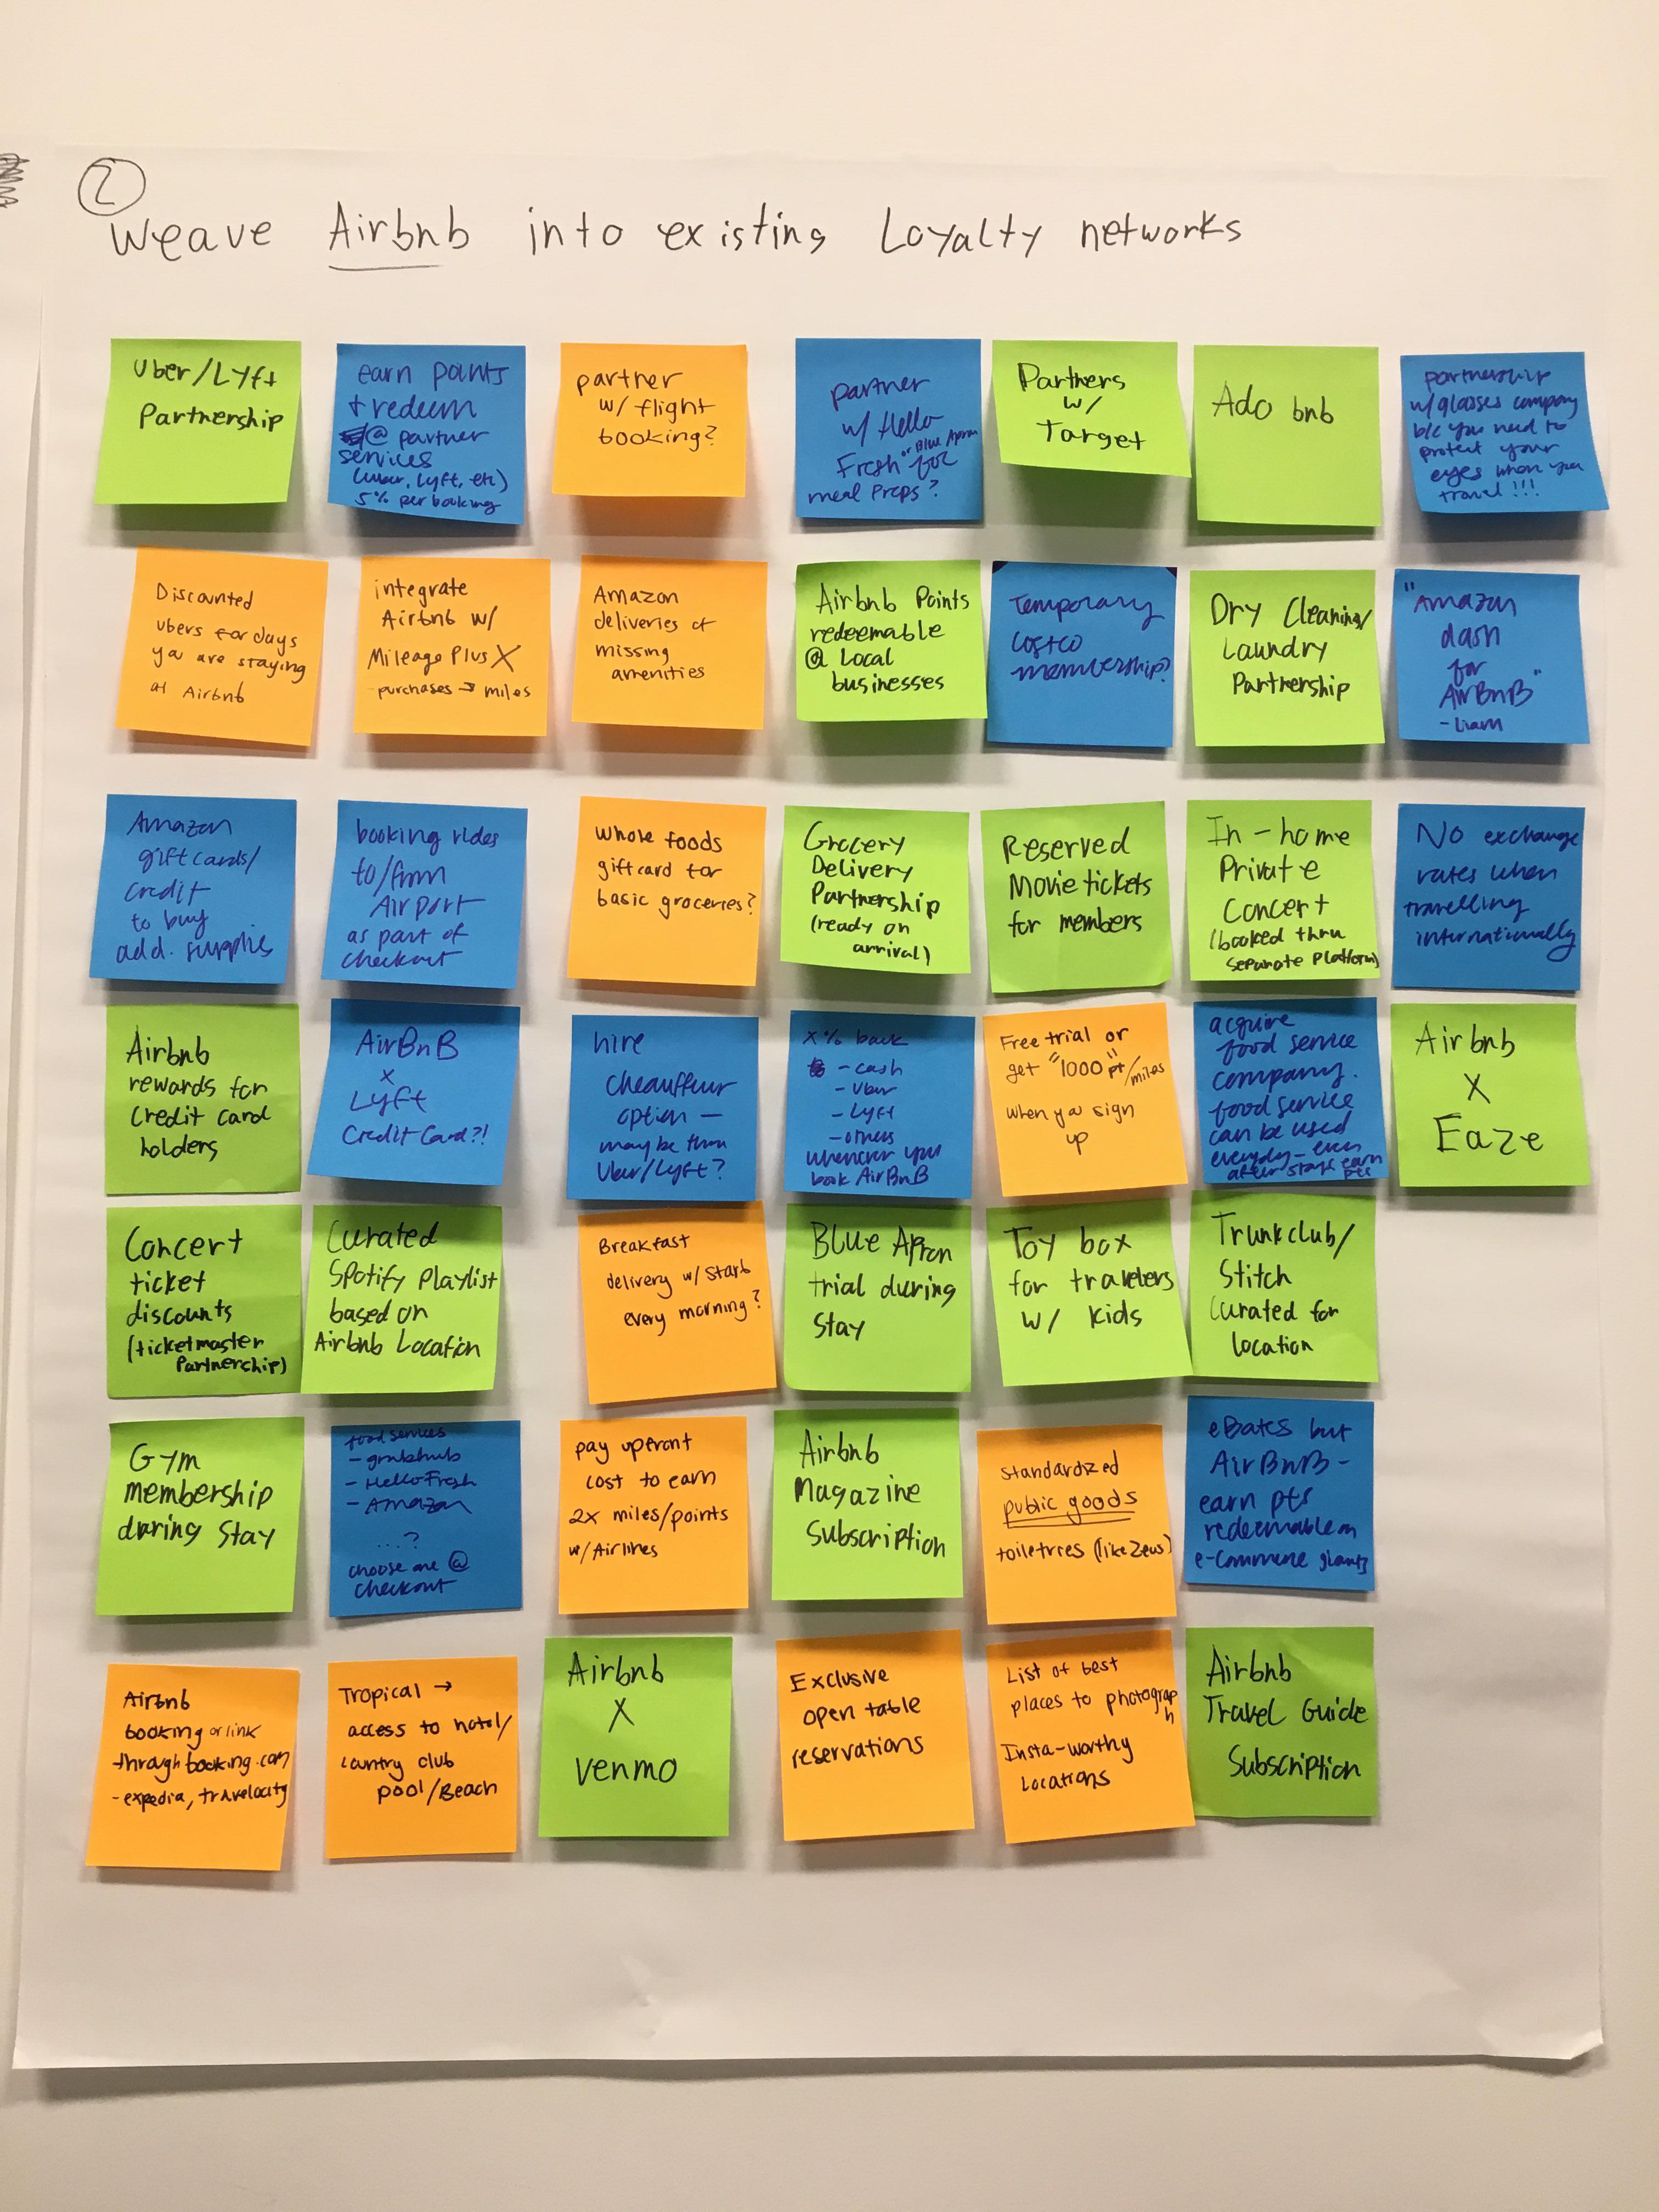 2
Weave Airbnb into existing Loyalty networks
Uber/Lyft
Partnership
earn points
+ redeem
@ partner
services
(uber, Lyft, etc)
5% per booking
partner
w/ flight
booking?
partner
w/ Hello
Fresh or Blue Apron for
meal preps?
Partners
w/
Target
Ado bnb
partnership
w/ glasses company
b/c you need to
protect your
eyes when you
travel!!!
Discounted
ubers for days
you are staying
at Airbnb
integrate
Airbnb w/
Mileage Plus X
purchases → miles
Amazon
deliveries of
missing
amenities
Airbnb Points
redeemable
@ Local
businesses
Temporary
costco
membership?
Dry Cleaning/
Laundry
Partnership
"Amazon
dash
for
AirBnB"
- Liam
Amazon
gift cards/
credit
to buy
add. supplies
booking rides
to/from
Airport
as part of
checkout
Whole foods
giftcard for
basic groceries?
Grocery
Delivery
Partnership
(ready on
arrival)
Reserved
Movie tickets
for members
In-home
Private
Concert
(booked thru
separate platform)
No exchange
rates when
travelling
internationally
Airbnb
rewards for
credit card
holders
AirBnB
x
Lyft
Credit Card?!
hire
cheauffeur
option —
maybe thru
Uber/Lyft?
x% back
- cash
- Uber
- Lyft
- others
whenever you
book AirBnB
Free trial or
get "1000" pt/miles
when you sign
up
acquire
food service
company.
food service
can be used
everyday - even
after stays earn
pts
Airbnb
X
Eaze
Concert
ticket
discounts
(ticketmaster
Partnership)
Curated
Spotify Playlist
based on
Airbnb Location
Breakfast
delivery w/ Starb
every morning?
Blue Apron
trial during
Stay
Toy box
for travelers
w/ kids
Trunkclub/
Stitch
curated for
location
Gym
membership
during Stay
food services
- grubhub
- Hello Fresh
- Amazon
...?
choose one @
checkout
pay upfront
cost to earn
2x miles/points
w/ Airlines
Airbnb
Magazine
Subscription
standardized
public goods
toiletries (like Zeus)
eBates but
AirBnB -
earn pts
redeemable on
e-commerce giants
Airbnb
booking or link
through booking.com
- expedia, travelocity
Tropical →
access to hotel/
country club
pool/Beach
Airbnb
X
venmo
Exclusive
open table
reservations
List of best
places to photograph
Insta-worthy
Locations
Airbnb
Travel Guide
Subscription